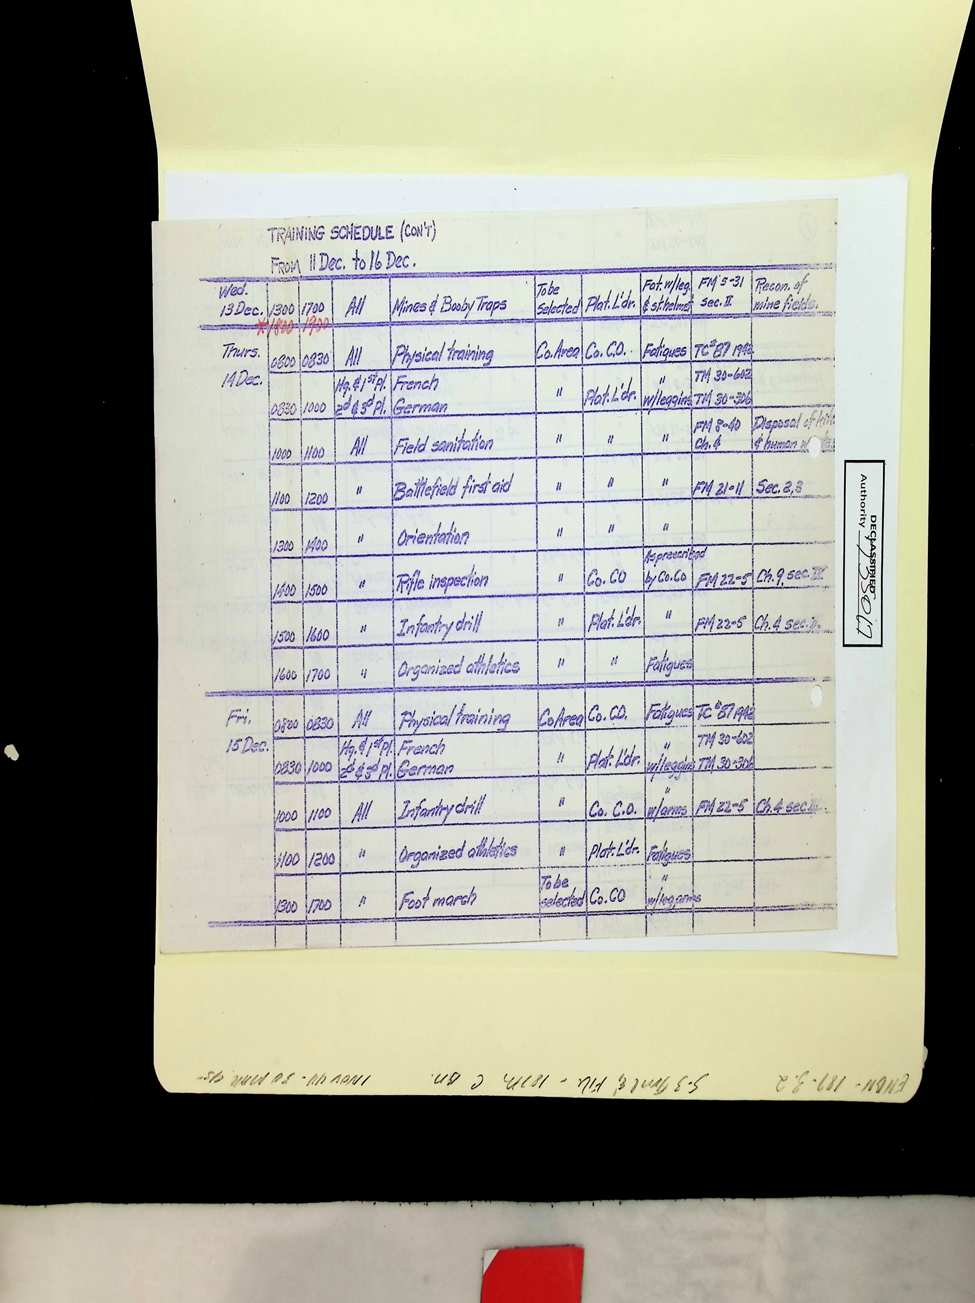 TRAINING SCHEDULE (CON'T)
FROM 11 Dec. to 16 Dec.
Wed. 13 Dec. 1300 1700 All Mines & Booby Traps To be Selected Plat. L'dr. Fat. w/leg. & st.helmet FM 5-31 sec. II Recon. of mine fields.
*1800 1900
Thurs. 14 Dec. 0800 0830 All Physical training Co. Area Co. C.O. Fatigues TC #87 1942
0830 1000 Hq. & 1st Pl. French 2d & 3d Pl. German " Plat. L'dr. " w/leggins TM 30-602 TM 30-306
1000 1100 All Field sanitation " " " FM 8-40 Ch. 4 Disposal of & human
1100 1200 " Battlefield first aid " " " FM 21-11 Sec. 2,3
1300 1400 " Orientation " " "
1400 1500 " Rifle inspection " Co. CO As prescribed by Co. Co FM 22-5 Ch. 9, sec.
1500 1600 " Infantry drill " Plat. L'dr. " FM 22-5 Ch. 4 sec.
1600 1700 " Organized athletics " " Fatigues
Fri. 15 Dec. 0800 0830 All Physical training Co Area Co. CO. Fatigues TC #87 1942
0830 1000 Hq. & 1st Pl. French 2d & 3d Pl. German " Plat. L'dr. " w/leggins TM 30-602 TM 30-306
1000 1100 All Infantry drill " Co. C.O. " w/arms FM 22-5 Ch. 4 sec.
1100 1200 " Organized athletics " Plat. L'dr. Fatigues
1300 1700 " Foot march To be selected Co. CO "
DECLASSIFIED
Authority 735017
ENBN - 187-3.2 S-3 Jnl & File - 187th C Bn. 1 Nov 44 - 30 Mar 45